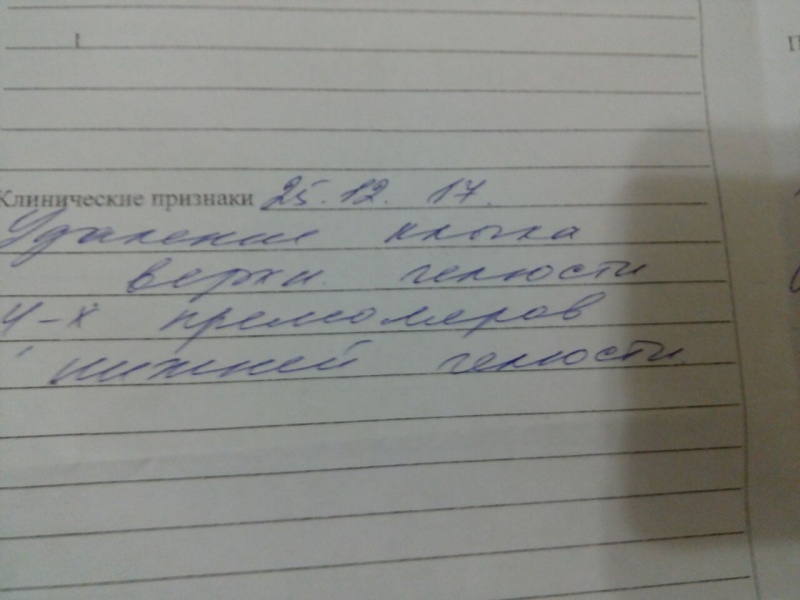 Клинические признаки 25.12.17.
Удаление клыка
верхн. челюсти
4-х премоляров
нижней челюсти.